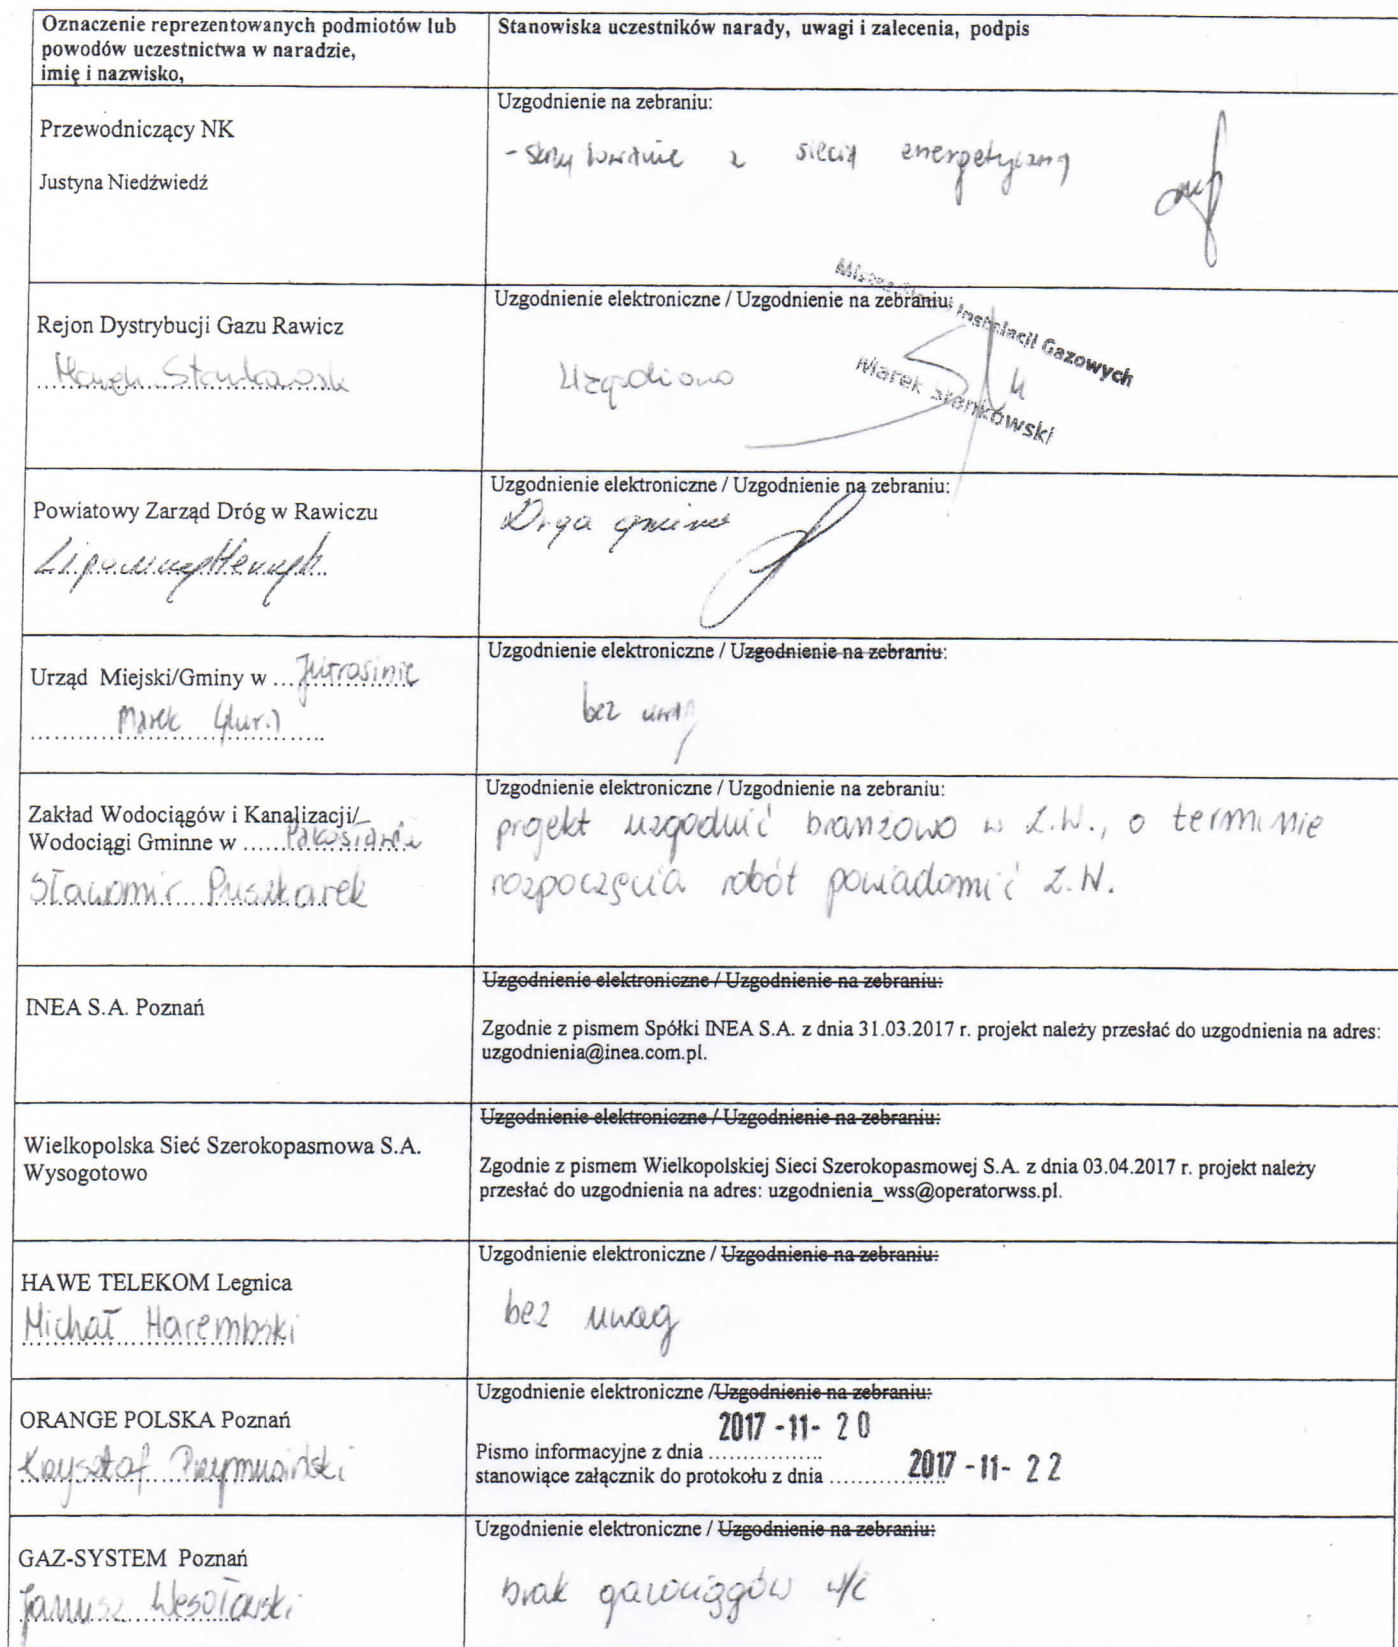 Oznaczenie reprezentowanych podmiotów lub
powodów uczestnictwa w naradzie,
imię i nazwisko,
Stanowiska uczestników narady, uwagi i zalecenia, podpis
Przewodniczący NK
Justyna Niedźwiedź
Uzgodnienie na zebraniu:
- skrzyżowanie z siecią energetyczną
Rejon Dystrybucji Gazu Rawicz
Marek Stankowski
Uzgodnienie elektroniczne / Uzgodnienie na zebraniu:
Uzgodniono
Instalacji Gazowych
Marek Stankowski
Powiatowy Zarząd Dróg w Rawiczu
Uzgodnienie elektroniczne / Uzgodnienie na zebraniu:
Droga gminna
Urząd Miejski/Gminy w ... Jutrosinie
Marek
Uzgodnienie elektroniczne / Uzgodnienie na zebraniu:
bez uwag
Zakład Wodociągów i Kanalizacji/
Wodociągi Gminne w ...... Pakosławiu
Sławomir Puszkarek
Uzgodnienie elektroniczne / Uzgodnienie na zebraniu:
projekt uzgodnić branżowo w Z.W., o terminie
rozpoczęcia robót powiadomić Z.W.
INEA S.A. Poznań
Uzgodnienie elektroniczne / Uzgodnienie na zebraniu:
Zgodnie z pismem Spółki INEA S.A. z dnia 31.03.2017 r. projekt należy przesłać do uzgodnienia na adres:
uzgodnienia@inea.com.pl.
Wielkopolska Sieć Szerokopasmowa S.A.
Wysogotowo
Uzgodnienie elektroniczne / Uzgodnienie na zebraniu:
Zgodnie z pismem Wielkopolskiej Sieci Szerokopasmowej S.A. z dnia 03.04.2017 r. projekt należy
przesłać do uzgodnienia na adres: uzgodnienia_wss@operatorwss.pl.
HAWE TELEKOM Legnica
Michał Harembski
Uzgodnienie elektroniczne / Uzgodnienie na zebraniu:
bez uwag
ORANGE POLSKA Poznań
Krzysztof Przymusiński
Uzgodnienie elektroniczne /Uzgodnienie na zebraniu:
2017 -11- 20
Pismo informacyjne z dnia .................
stanowiące załącznik do protokołu z dnia ................. 2017 -11- 22
GAZ-SYSTEM Poznań
Janusz Wesołowski
Uzgodnienie elektroniczne / Uzgodnienie na zebraniu:
brak gazociągów w/c